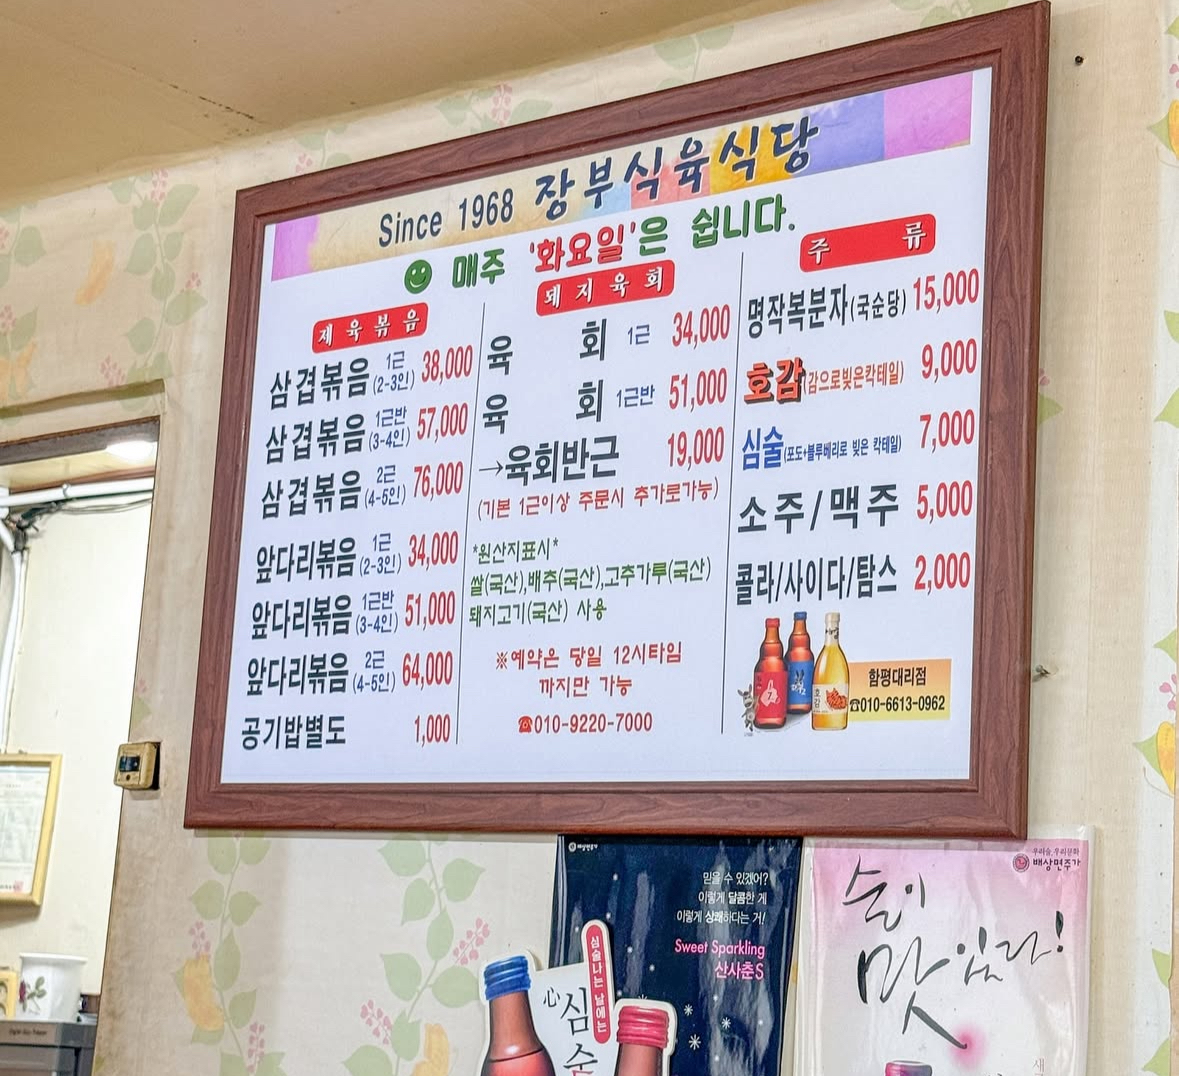 Since 1968 장부식육식당
매주 '화요일'은 쉽니다.
제육볶음
삼겹볶음 1근 (2-3인) 38,000
삼겹볶음 1근반 (3-4인) 57,000
삼겹볶음 2근 (4-5인) 76,000
앞다리볶음 1근 (2-3인) 34,000
앞다리볶음 1근반 (3-4인) 51,000
앞다리볶음 2근 (4-5인) 64,000
공기밥별도 1,000
돼지육회
육 회 1근 34,000
육 회 1근반 51,000
→육회반근 19,000
(기본 1근이상 주문시 추가로가능)
*원산지표시*
쌀(국산),배추(국산),고추가루(국산)
돼지고기(국산) 사용
※예약은 당일 12시타임
까지만 가능
☎010-9220-7000
주 류
명작복분자(국순당) 15,000
호감(감으로빚은칵테일) 9,000
심술(포도+블루베리로 빚은 칵테일) 7,000
소주/맥주 5,000
콜라/사이다/탐스 2,000
함평대리점
☎010-6613-0962
배상면주가
믿을 수 있겠어?
이렇게 달콤한 게
이렇게 상쾌하다는 거!
Sweet Sparkling
산사춘S
심술나는 날에는
心 심술
우리술, 우리문화
배상면주가
술이
맛있다!